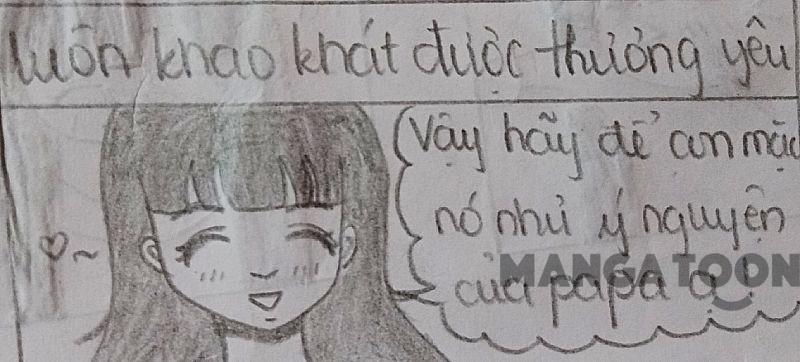 luôn khao khát được thương yêu
Vậy hãy để con mặc
nó như ý nguyện
của papa ạ!
MANGATOON